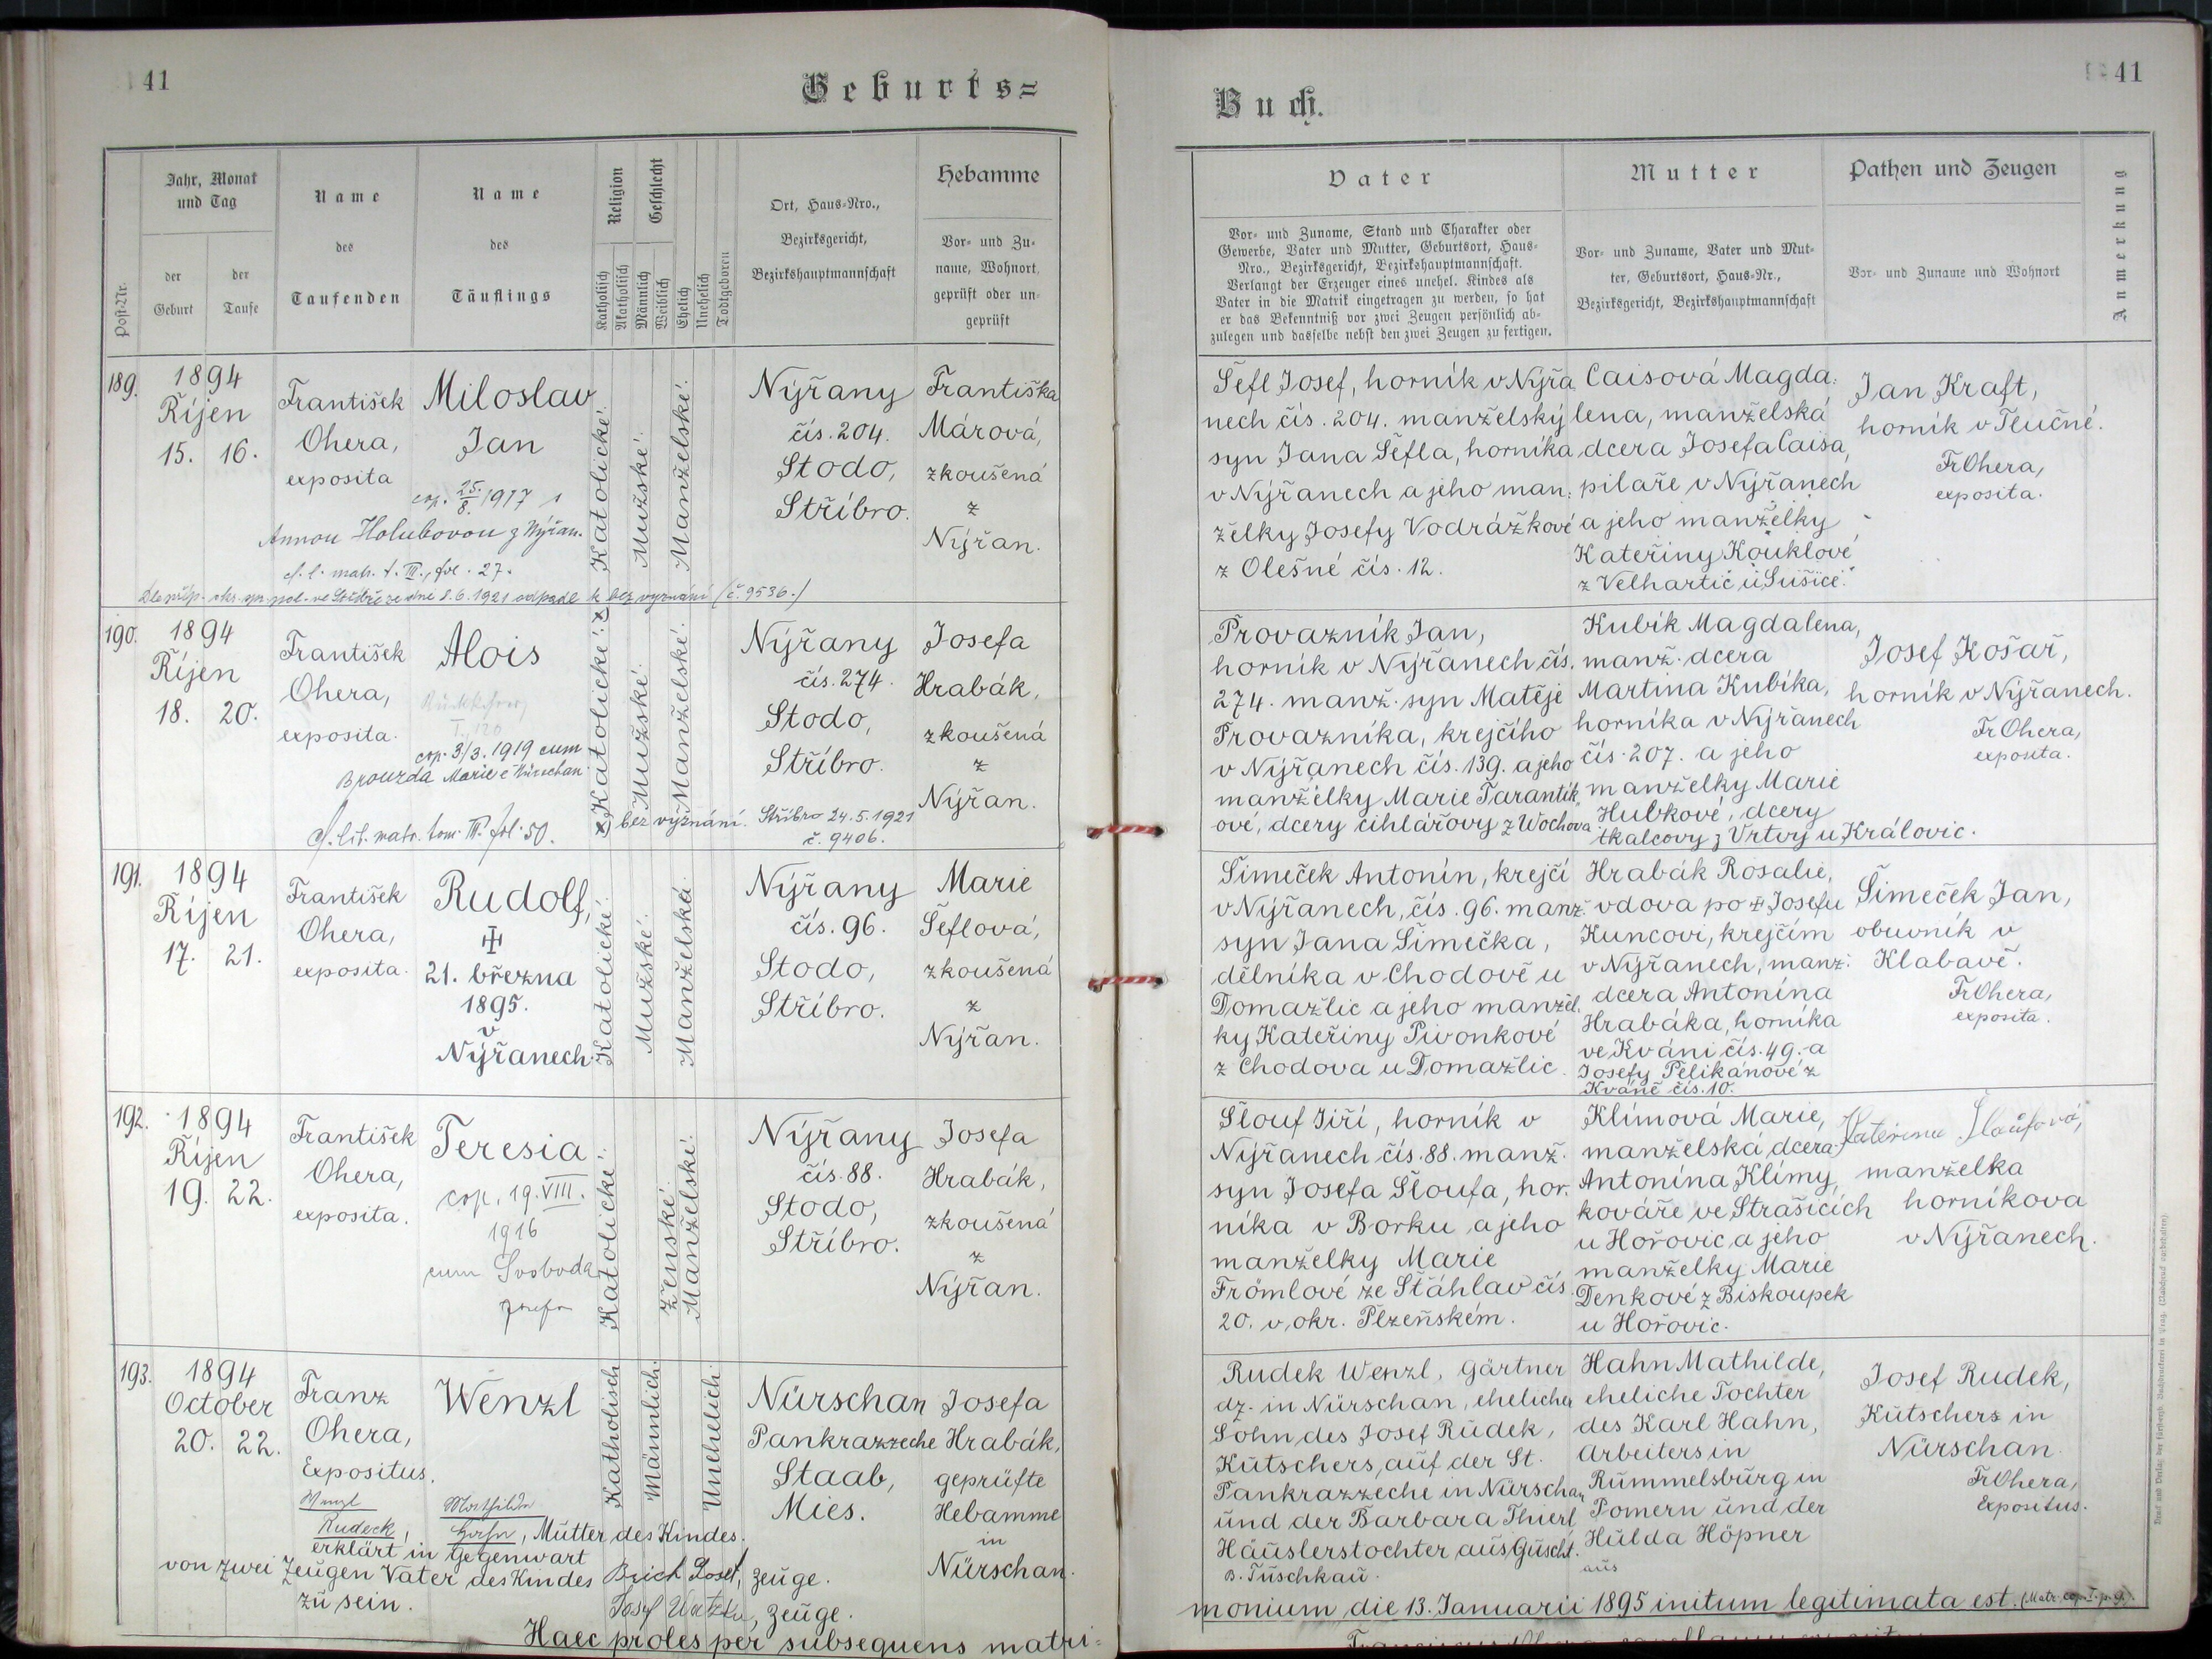 41
Geburts=
Jahr, Monat
und Tag
der
Geburt
der
Taufe
Post-Nr.
Name
des
Taufenden
Name
des
Täuflings
Religion
Katholisch
Akatholisch
Geschlecht
Männlich
Weiblich
Ehelich
Unehelich
Todtgeboren
Ort, Haus-Nro.,
Bezirksgericht,
Bezirkshauptmannschaft
Hebamme
Vor- und Zu-
name, Wohnort,
geprüft oder un-
geprüft
189.
1894
Říjen
15. 16.
František
Ohera,
exposita
Miloslav
Jan
cop. 25./8. 1917 s
Annou Holubovou z Nýřan.
cf. l. matr. t. III., fol. 27.
Katolické.
Mužské.
Manželské.
Nýřany
čís. 204.
Stodo,
Stříbro.
Františka
Márová,
zkoušená
z
Nýřan.
ve Stříbře ze dne 8.6.1921 odpadl k bez vyznání (č. 9536.)
190.
1894
Říjen
18. 20.
František
Ohera,
exposita.
Alois
cop. 3/3. 1919 cum
Brouzda Marie e Nürschan
cf. lib. matr. tom. III. fol. 50.
Katolické. x)
Mužské.
Manželské.
Nýřany
čís. 274.
Stodo,
Stříbro.
Josefa
Hrabák,
zkoušená
z
Nýřan.
x) bez vyznání. Stříbro 24.5.1921
č. 9406.
191.
1894
Říjen
17. 21.
František
Ohera,
exposita.
Rudolf,
21. března
1895.
v
Nýřanech.
Katolické.
Mužské.
Manželská.
Nýřany
čís. 96.
Stodo,
Stříbro.
Marie
Šeflová,
zkoušená
z
Nýřan.
192.
1894
Říjen
19. 22.
František
Ohera,
exposita.
Teresia
cop. 19. VIII.
1916
cum Svoboda
Josefo
Katolické.
Ženské.
Manželské.
Nýřany
čís. 88.
Stodo,
Stříbro.
Josefa
Hrabák,
zkoušená
z
Nýřan.
193.
1894
October
20. 22.
Franz
Ohera,
Expositus.
Wenzl
Katholisch
Männlich.
Unehelich.
Nürschan
Pankrazzeche
Staab,
Mies.
Josefa
Hrabák,
geprüfte
Hebamme
in
Nürschan.
Wenzl
Rudeck,
Mathilde
Hahn, Mutter des Kindes.
erklärt in Gegenwart
von zwei Zeugen Vater des Kindes
zu sein.
Josef, Zeuge.
Josef, Zeuge.
Haec proles per subsequens matri-
41
Buch.
Vater
Vor- und Zuname, Stand und Charakter oder
Gewerbe, Vater und Mutter, Geburtsort, Haus-
Nro., Bezirksgericht, Bezirkshauptmannschaft.
Verlangt der Erzeuger eines unehel. Kindes als
Vater in die Matrik eingetragen zu werden, so hat
er das Bekenntniß vor zwei Zeugen persönlich ab-
zulegen und dasselbe nebst den zwei Zeugen zu fertigen.
Mutter
Vor- und Zuname, Vater und Mut-
ter, Geburtsort, Haus-Nr.,
Bezirksgericht, Bezirkshauptmannschaft
Pathen und Zeugen
Vor- und Zuname und Wohnort
Anmerkung
Šefl Josef, horník v Nýřa
nech čís. 204. manželský
syn Jana Šefla, horníka
v Nýřanech a jeho man:
želky Josefy Vodrážkové
z Olešné čís. 12.
Caisová Magda:
lena, manželská
dcera Josefa Caisa,
pilaře v Nýřanech
a jeho manželky
Kateřiny Kouklové
z Velhartic u Sušice.
Jan Kraft,
horník v Tlučné.
Fr Ohera,
exposita.
Provazník Jan,
horník v Nýřanech čís.
274. manž. syn Matěje
Provazníka, krejčího
v Nýřanech čís. 139. a jeho
manželky Marie Tarantík
ové, dcery cihlářovy z Wochova
Kubík Magdalena,
manž. dcera
Martina Kubíka,
horníka v Nýřanech
čís. 207. a jeho
manželky Marie
Hubkové, dcery
tkalcovy z Vrtvy u Královic.
Josef Košař,
horník v Nýřanech.
Fr Ohera,
exposita.
Šimeček Antonín, krejčí
v Nýřanech, čís. 96. manž.
syn Jana Šimečka,
dělníka v Chodově u
Domažlic a jeho manžel.
ky Kateřiny Pivonkové
z Chodova u Domažlic.
Hrabák Rosalie,
vdova po ‡ Josefu
Kuncovi, krejčím
v Nýřanech, manž.
dcera Antonína
Hrabáka, horníka
ve Kváni čís. 49. a
Josefy Pelikánové z
Kváně čís. 10.
Šimeček Jan,
obuvník v
Klabavě.
Fr Ohera,
exposita.
Šlouf Jiří, horník v
Nýřanech čís. 88. manž.
syn Josefa Šloufa, hor.
níka v Borku a jeho
manželky Marie
Frömlové ze Štáhlav čís.
20. v okr. Plzeňském.
Klímová Marie,
manželská dcera
Antonína Klímy,
kováře ve Strašicích
u Hořovic a jeho
manželky Marie
Denkové z Biskoupek
u Hořovic.
Kateřina Šloufová,
manželka
horníkova
v Nýřanech.
Rudek Wenzl, Gärtner
dz. in Nürschan, ehelicher
Sohn des Josef Rudek,
Kutschers, auf der St.
Pankrazzeche in Nürschan
und der Barbara Thierl
Häuslerstochter aus Guscht.
B. Tuschkau.
Hahn Mathilde,
eheliche Tochter
des Karl Hahn,
Arbeiters in
Rummelsburg in
Pomern und der
Hulda Höpner
aus
Josef Rudek,
Kutschers in
Nürschan.
Fr Ohera,
Expositus.
monium die 13. Januarii 1895 initum legitimata est. (Matr. cop. I. p. 9.)